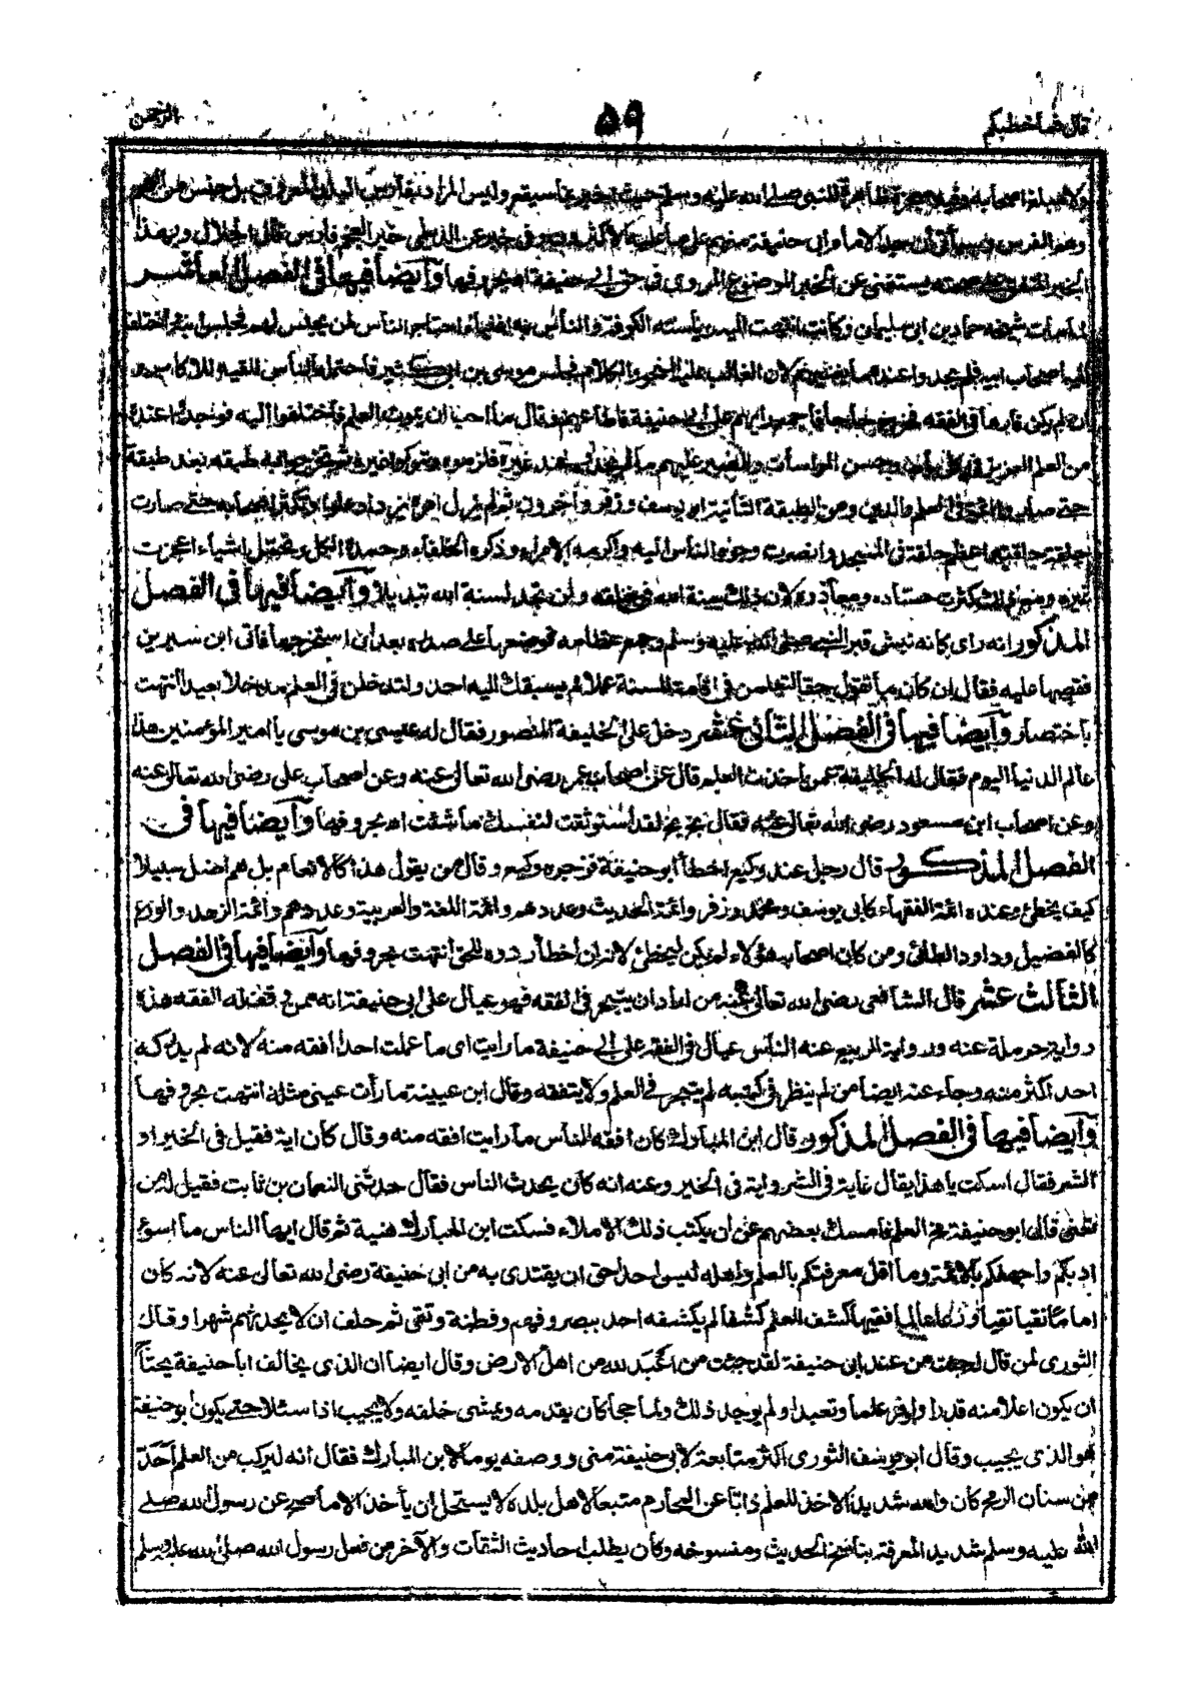 قال فما خطبكم ٥٩ الرحمن
ولا مبلغ اصحابه وفيه معجزة ظاهرة للنبي صلى الله عليه وسلم حيث اخبر بما سيقع وليس المراد بفارس البلاد المعروف بل جنس من العجم
وهم الفرس وسيأتي أن جد الامام ابي حنيفة منهم على ما عليه الاكثرون وفي خبر عن الديلمي خير العجم فارس قال الجلال وبهذا
الخبر المتفق على صحته يستغنى عن الخبر الموضوع المروي في حق ابي حنيفة اه بحروفها وأيضا فيها في الفصل العاشر
لما مات شيخه حماد بن ابي سليمان وكانت انتهت اليه رياسة الكوفة والناس به اغنياء احتاج الناس لمن يجلس لهم فجلس ابنه فاختلف
اليه اصحاب ابيه فلم يجدوا عنده ما يغنيهم لان الغالب عليه النحو والكلام فجلس موسى بن ابي كثير فاحتمله الناس للقيه للاكابر
ان لم يكن فارها في الفقه فخرج حاجا فاجمع رأيهم على ابي حنيفة فاطاعهم فقال ما احب ان يموت العلم فاختلفوا اليه فوجدوا عنده
من العلم العزيز في كل باب وحسن المواسات والصبر عليهم ما لم يجدوه عند غيره فلزموه وتركوا غيره فتخرجوا به طبقة بعد طبقة
حتى صاروا ائمة في العلم والدين ومن الطبقة الثانية ابو يوسف وزفر وآخرون ثم لم يزل امره يزداد علوا وتكثر اصحابه حتى صارت
حلقته اعظم حلقة في المسجد وانصرفت وجوه الناس اليه واكرمه الامراء وذكره الخلفاء وحمده الكل وتحمل اشياء اعجزت
غيره ومع ذلك كثرت حساده ومعاندوه لان ذلك سنة الله في خلقه ولن تجد لسنة الله تبديلا وأيضا فيها في الفصل
المذكور انه راى كانه نبش قبر النبي صلى الله عليه وسلم وجمع عظامه فوضعها على صدره بعد أن استخرجها فاتى ابن سيرين
فقصها عليه فقال ان كان ما تقول حقا لتعلمن في اقامة السنة عملا لم يسبقك اليه احد ولتدخلن في العلم مدخلا بعيدا انتهت
باختصار وأيضا فيها في الفصل الثاني عشر دخل على الخليفة المنصور فقال له عيسى بن موسى يا امير المؤمنين هذا
عالم الدنيا اليوم فقال له الخليفة عمن اخذت العلم قال عن اصحاب عمر رضي الله تعالى عنه وعن اصحاب علي رضي الله تعالى عنه
وعن اصحاب ابن مسعود رضي الله تعالى عنه فقال بخ بخ لقد استوثقت لنفسك ما شئت اه بحروفها وأيضا فيها في
الفصل المذكور قال رجل عند وكيع اخطأ ابو حنيفة فزجره وكيع وقال من يقول هذا كالانعام بل هم اضل سبيلا
كيف يخطئ وعنده ائمة الفقهاء كابي يوسف ومحمد وزفر وائمة الحديث وعددهم وائمة اللغة والعربية وعددهم وائمة الزهد والورع
كالفضيل وداود الطائي ومن كان اصحابه هؤلاء لم يكن ليخطئ لانه ان اخطأ ردوه للحق انتهت بحروفها وأيضا فيها في الفصل
الثالث عشر قال الشافعي رضي الله تعالى عنه من اراد ان يتبحر في الفقه فهو عيال على ابي حنيفة انه ممن وفق له الفقه هذه
رواية حرملة عنه ورواية الربيع عنه الناس عيال في الفقه على ابي حنيفة ما رايت اي ما علمت احدا افقه منه لانه لم يدرك
احد اكثر منه وجاء عنه ايضا من لم ينظر في كتبه لم يتبحر في العلم ولا يتفقه وقال ابن عيينة ما رأت عيني مثله انتهت بحروفها
وأيضا فيها في الفصل المذكور قال ابن المبارك كان افقه الناس ما رايت افقه منه وقال كان اية فقيل في الخير او
الشر فقال اسكت يا هذا يقال غاية في الشر واية في الخير وعنه انه كان يحدث الناس فقال حدثني النعمان بن ثابت فقيل له من
تعني قال ابو حنيفة مخ العلم فامسك بعضهم عن ان يكتب ذلك الاملاء فسكت ابن المبارك هنية ثم قال ايها الناس ما اسوء
ادبكم واجهلكم بالائمة وما اقل معرفتكم بالعلم واهله ليس احد احق ان يقتدى به من ابي حنيفة رضي الله تعالى عنه لانه كان
اماما تقيا نقيا ورعا عالما فقيها كشف العلم كشفا لم يكشفه احد ببصر وفهم وفطنة وتقى ثم حلف ان لا يحدثهم شهرا وقال
الثوري لمن قال له جئت من عند ابي حنيفة لقد جئت من اعبد لله من اهل الارض وقال ايضا ان الذي يخالف ابا حنيفة يحتاج
ان يكون اعلا منه قدرا واوفر علما وبعيدا ولم يوجد ذلك ولما حجا كان يقدمه ويمشي خلفه ولا يجيب اذا سئلا حتى يكون ابو حنيفة
هو الذي يجيب وقال ابو يوسف الثوري اكثر متابعة لابي حنيفة مني ووصفه يوما لابن المبارك فقال انه ليركب من العلم احد
من سنان الرمح كان والله شديد الاخذ للعلم ذابا عن المحارم متبعا لاهل بلده لا يستحل ان يأخذ الا ما صح عن رسول الله صلى
الله عليه وسلم شديد المعرفة بناسخ الحديث ومنسوخه وكان يطلب احاديث الثقات والآخر من فعل رسول الله صلى الله عليه وسلم